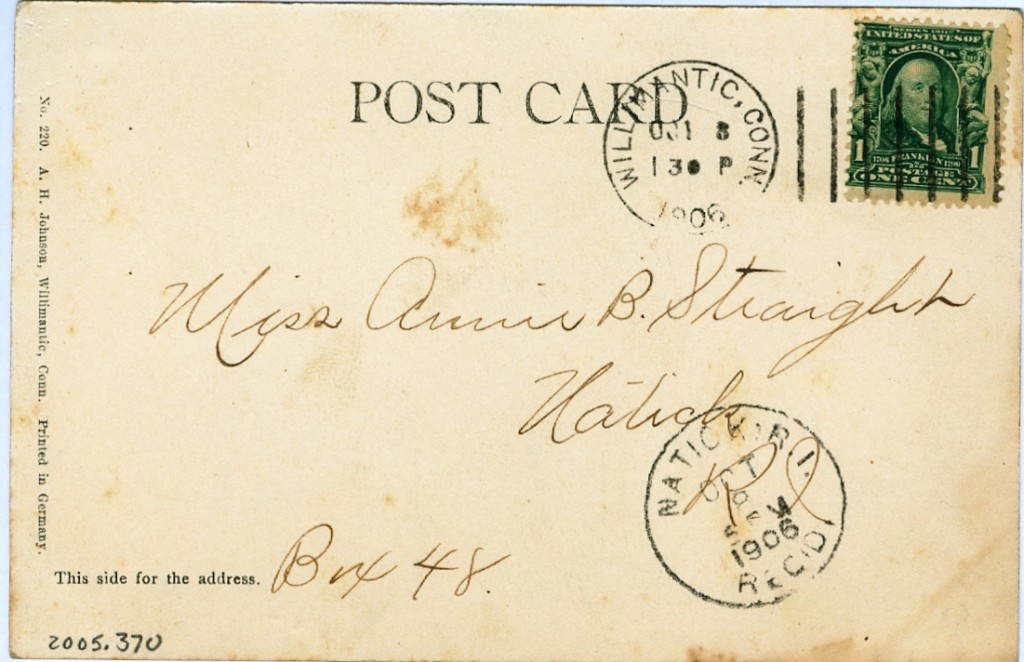 POST CARD
WILLIMANTIC, CONN.
OCT 8
1 30 P
1906
SERIES 1902
UNITED STATES OF
AMERICA
1 1
1706 FRANKLIN 1790
POSTAGE
ONE CENT
No. 220. A. H. Johnson, Willimantic, Conn. Printed in Germany.
Miss Annie B. Straight
Natick
R I
NATICK, R.I.
OCT
1906
REC'D.
This side for the address.
Box 48.
2005.370